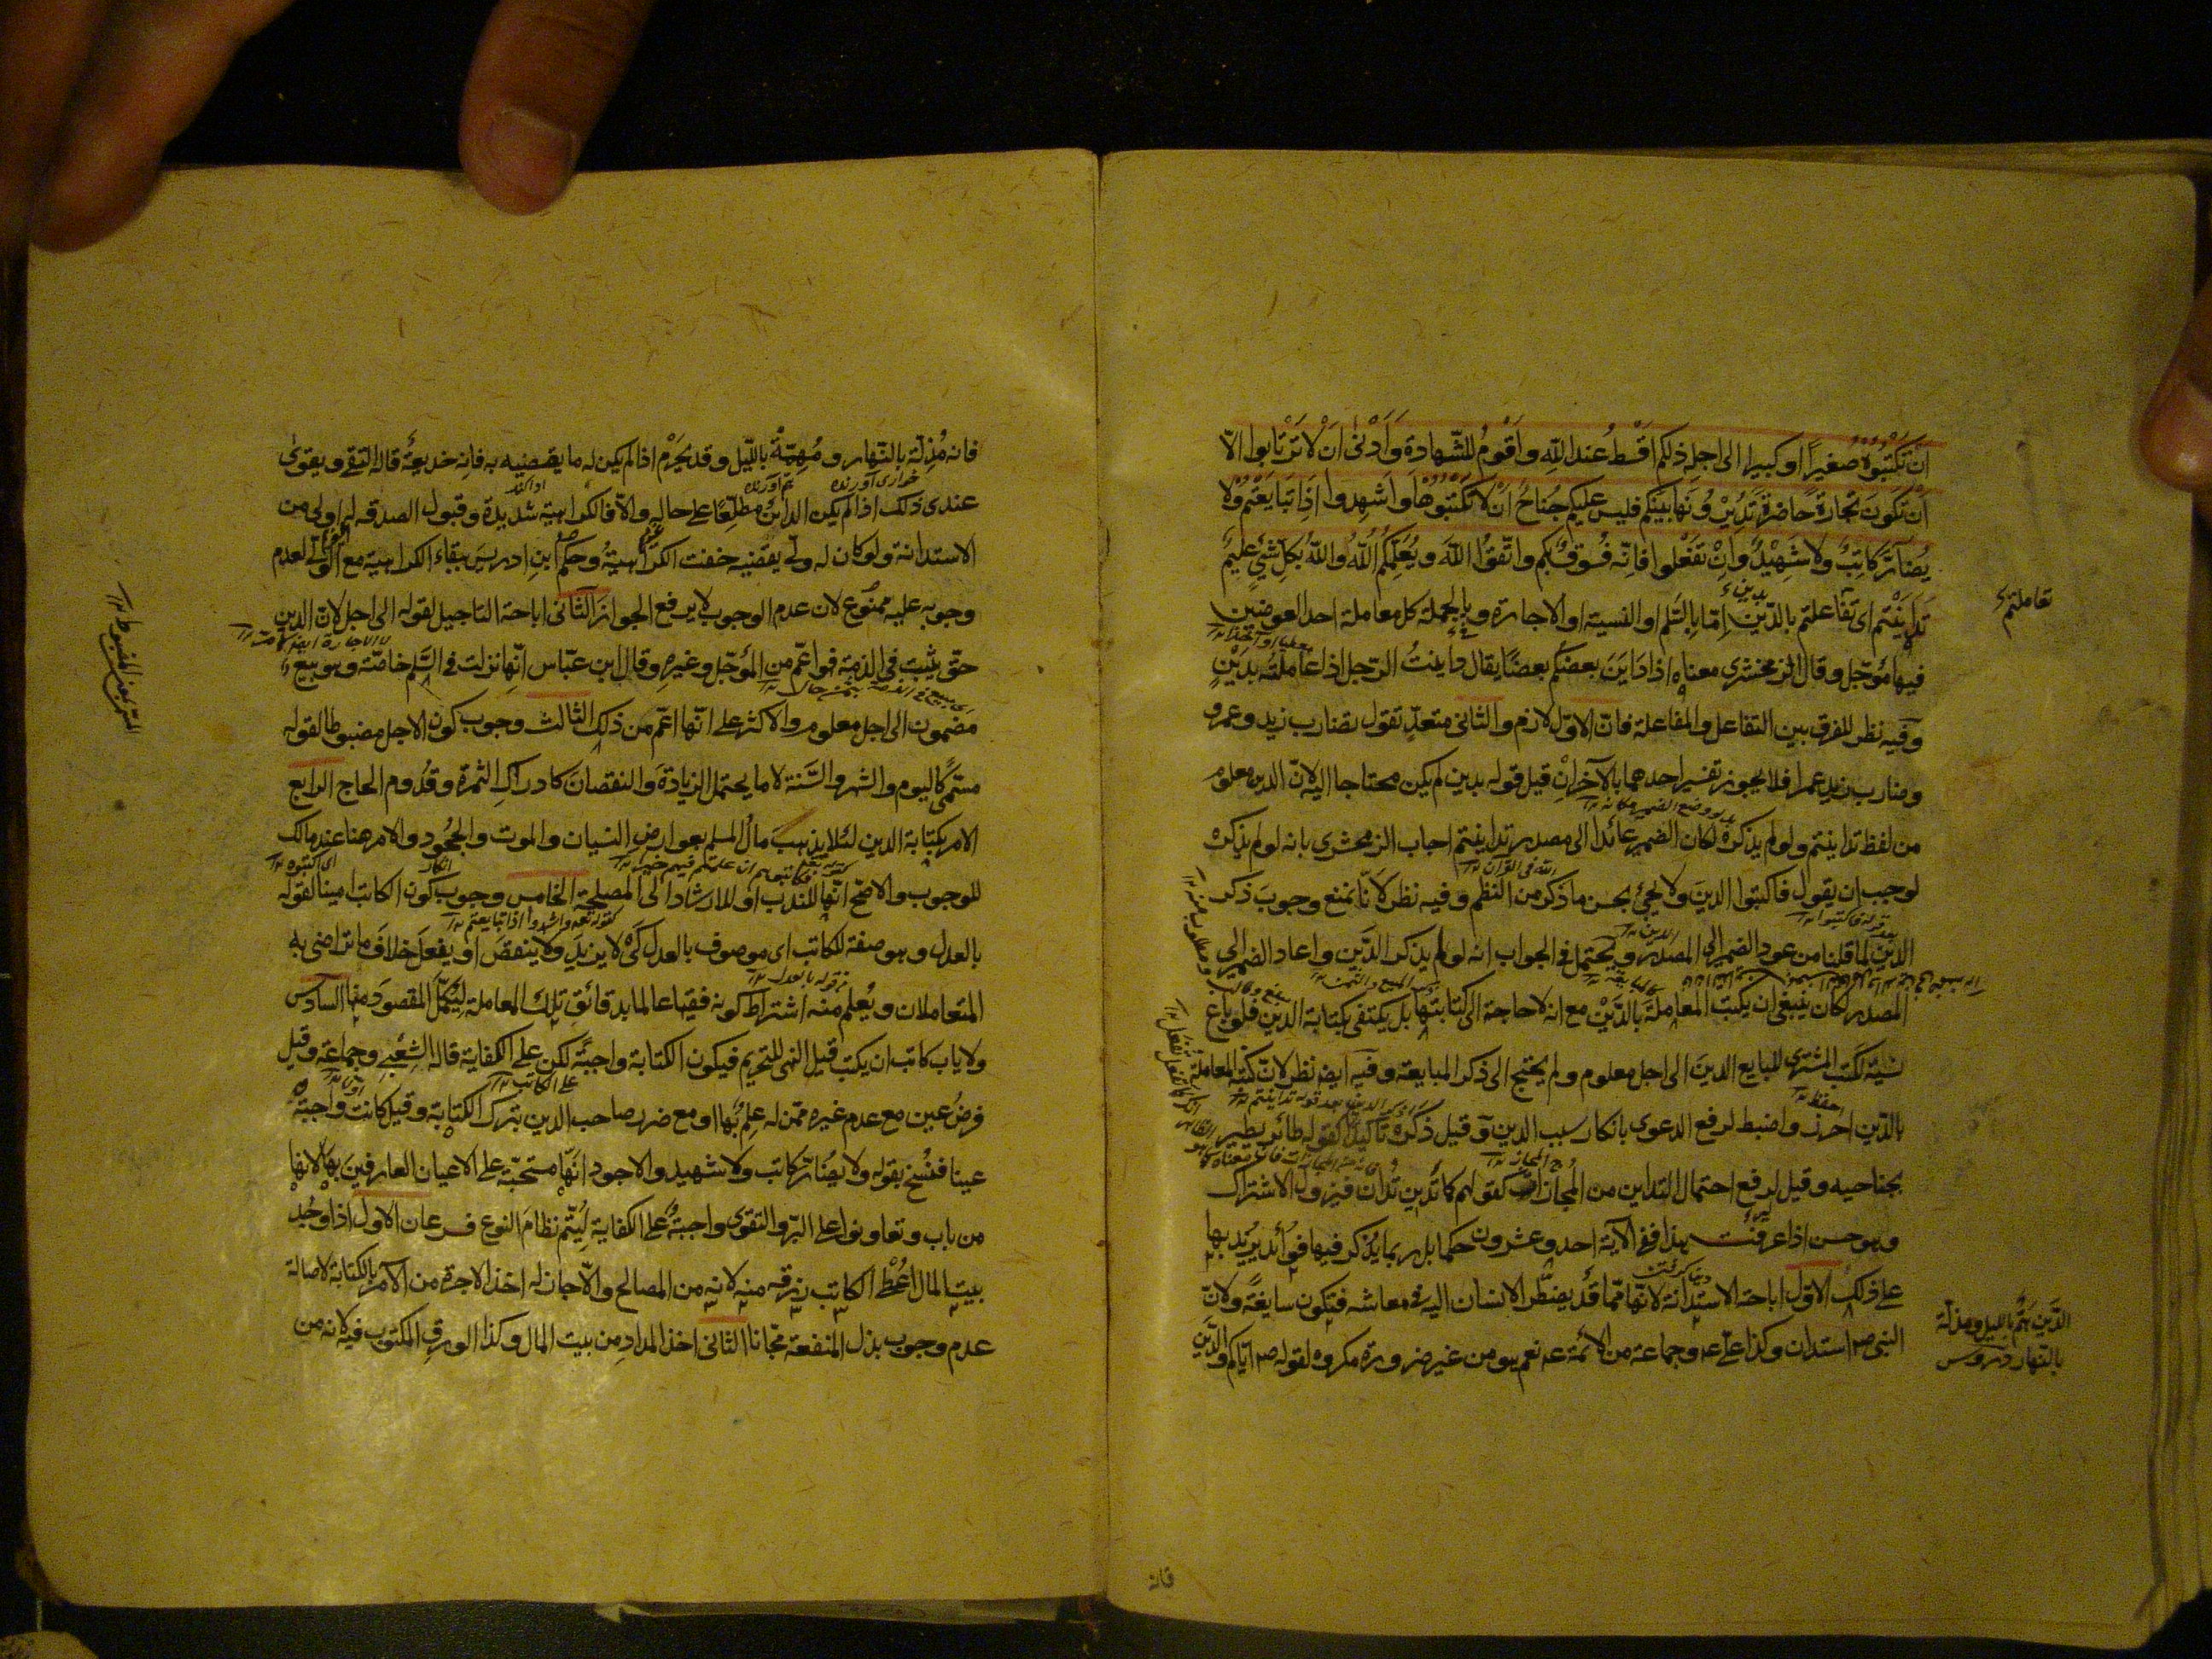 ان تكتبوه صغيرا او كبيرا الى اجله ذلكم اقسط عند الله واقوم للشهادة وادنى ان لا ترتابوا الا
ان تكون تجارة حاضرة تديرونها بينكم فليس عليكم جناح ان لا تكتبوها واشهدوا اذا تبايعتم ولا
يضار كاتب ولا شهيد وان تفعلوا فانه فسوق بكم واتقوا الله ويعلمكم الله والله بكل شيء عليم
تداينتم اى تفاعلتم بالدين اما بالسلم او النسية او الاجارة وبالجملة كل معاملة احد العوضين
فيها مؤجل وقال الزمخشرى معناه اذا داين بعضكم بعضا يقال داينت الرجل اذا عاملته بدين
وفيه نظر للفرق بين التفاعل والمفاعلة فان الاول لازم والثانى متعد تقول تضارب زيد وعمرو
وضارب زيد عمرا فلا يجوز تفسير احدهما بالآخر ان قيل قوله بدين لم يكن محتاجا اليه لان الدين معلوم
من لفظ تداينتم ولو لم يذكره لكان الضمير عائدا الى مصدر تداينتم اجاب الزمخشرى بانه لو لم يذكره
لوجب ان يقول فاكتبوا الدين ولا يجئ بحسن ما ذكر من النظم وفيه نظر لانا نمنع وجوب ذكر
الدين لما قلنا من عود الضمير الى المصدر ويحتمل فى الجواب انه لو لم يذكر الدين واعاد الضمير الى
المصدر كان ينبغى ان يكتب المعاملة بالدين مع انه لا حاجة الى كتابتها بل يكتفى بكتابة الدين فلو باع
نسية لكتب المشترى للبايع الدين الى اجل معلوم ولم يحتج الى ذكر المبايعة وفيه ايضا نظر لان كتبه المعاملة
بالدين احرز واضبط لرفع الدعوى بانكار سبب الدين وقيل ذكره تاكيدا كقوله طائر يطير
بجناحيه وقيل لرفع احتمال التداين من المجازات كقولهم كما تدين تدان فيزول الاشتراك
وهو حسن اذا عرفت هذا ففى الآية احد وعشرون حكما بل ربما يذكر فيها فوائد يزيد بها
على ذلك الاول اباحة الاستدانة لانها مما قد يضطر الانسان اليه فى معاشه فتكون سايغة ولان
النبى ص استدان وكذا على ع وجماعة من الائمة ع نعم هو من غير ضرورة مكروه لقوله ص اياكم والدين
تعاملتم
الدين هم بالليل ومذلة
بالنهار دروس
فانه
فانه مذلة بالنهار ومهمة بالليل وقد يحرم اذا لم يكن له ما يقضيه به فانه خديعة قاله التقى ويقوى
عندى ذلك اذا لم يكن الدائن مطلعا على حاله والا فالكراهية شديدة وقبول الصدقة له اولى من
الاستدانة ولو كان له ولى يقضيه خفت الكراهية وحكم ابن ادريس ببقاء الكراهية مع الولى لعدم
وجوبه عليه ممنوع لان عدم الوجوب لا يرفع الجواز الثانى اباحة التاجيل لقوله الى اجل لان الدين
حق يثبت فى الذمة فهو اعم من المؤجل وغيره وقال ابن عباس انها نزلت فى السلم خاصة وهو بيع
مضمون الى اجل معلوم والاكثر على انها اعم من ذلك الثالث وجوب كون الاجل مضبوطا لقوله
مسمى كاليوم والشهر والسنة لا ما يحتمل الزيادة والنقصان كادراك الثمرة وقدوم الحاج الرابع
الامر بكتابة الدين لئلا يذهب مال المسلم بعوارض النسيان والموت والجحود والامر هنا عند مالك
للوجوب والاصح انها للندب او للارشاد الى المصلحة الخامس وجوب كون الكاتب امينا لقوله
بالعدل وهو صفة للكاتب اى موصوف بالعدل كى لا يزيد ولا ينقص او يفعل خلاف ما تراضى به
المتعاملان ويعلم منه اشتراط كونه فقيها عالما بدقائق تلك المعاملة ليكمل المقصود منها السادس
ولا ياب كاتب ان يكتب قيل النهى للتحريم فيكون الكتابة واجبة لكن على الكفاية قاله الشعبى وجماعة وقيل
فرض عين مع عدم غيره ممن له علم بها او مع ضرر صاحب الدين بترك الكتابة وقيل كانت واجبة
عينا فنسخ بقوله ولا يضار كاتب ولا شهيد والاجود انها مستحبة على الاعيان العارفين بها لانها
من باب وتعاونوا على البر والتقوى واجبة على الكفاية ليتم نظام النوع فرعان الاول اذا وجد
بيت المال اعطى الكاتب رزقه منه لانه من المصالح والا جاز له اخذ الاجرة من الآمر بالكتابة لاصالة
عدم وجوب بذل المنفعة مجانا الثانى اخذ المداد من بيت المال وكذا الورق المكتوب فيه لانه من